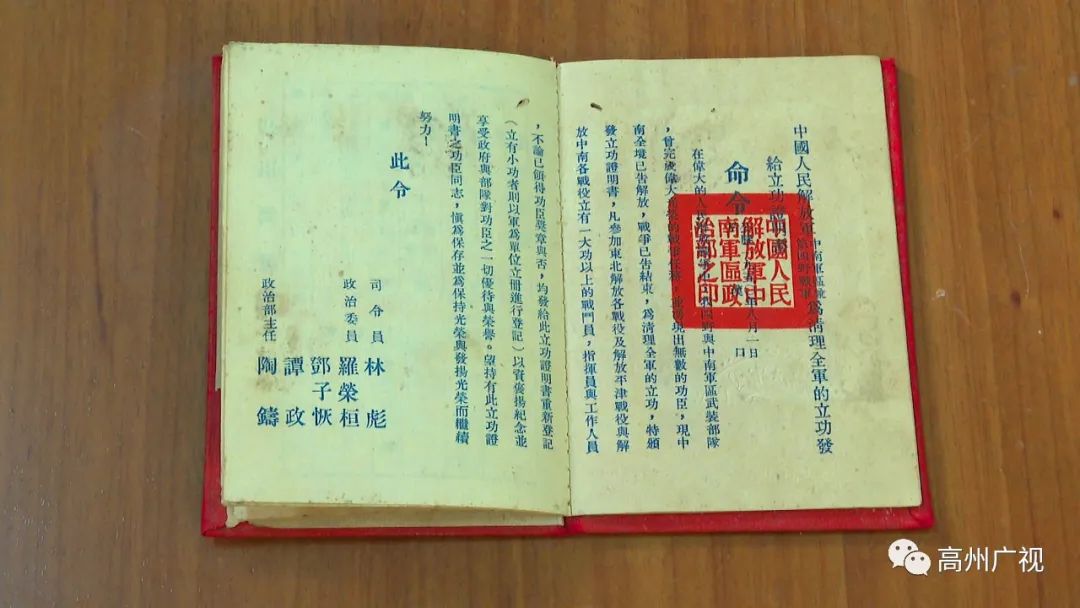 中國人民解放軍中南軍區第四野戰軍爲清理全軍的立功發
給立功證明書
命令
八月一日
在偉大的人民解放戰爭中我四野與中南軍區武裝部隊
，曾完成偉大的戰鬥任務，並湧現出無數的功臣，現中
南全境已告解放，戰爭已告結束，爲清理全軍的立功，特頒
發立功證明書，凡參加東北解放各戰役及解放平津戰役與解
放中南各戰役立有一大功以上的戰鬥員，指揮員與工作人員
中國人民
解放軍中
南軍區政
治部之印
，不論已領得功臣獎章與否，均發給此立功證明書重新登記
（立有小功者則以軍爲單位立冊進行登記）以資褒揚紀念並
享受政府與部隊對功臣之一切優待與榮譽。望持有此立功證
明書之功臣同志，愼爲保存並爲保持光榮與發揚光榮而繼續
努力！
此令
司令員 林彪
政治委員 羅榮桓
鄧子恢
譚政
政治部主任 陶鑄
高州广视